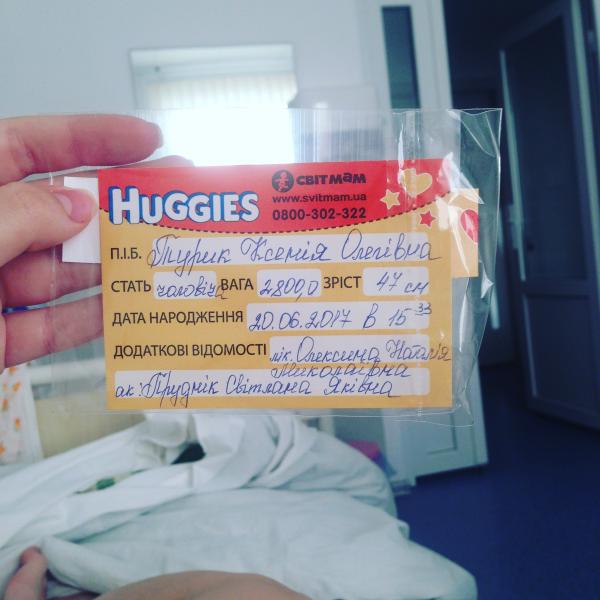 HUGGIES
СВІТМАМ
www.svitmam.ua
0800-302-322
П.І.Б. Турик Ксенія Олегівна
СТАТЬ чоловіча ВАГА 2800,0 ЗРІСТ 47 см
ДАТА НАРОДЖЕННЯ 20.06.2017 в 15 33
ДОДАТКОВІ ВІДОМОСТІ лік. Олексина Наталія
Миколаївна
ак: Труднік Світлана Яківна